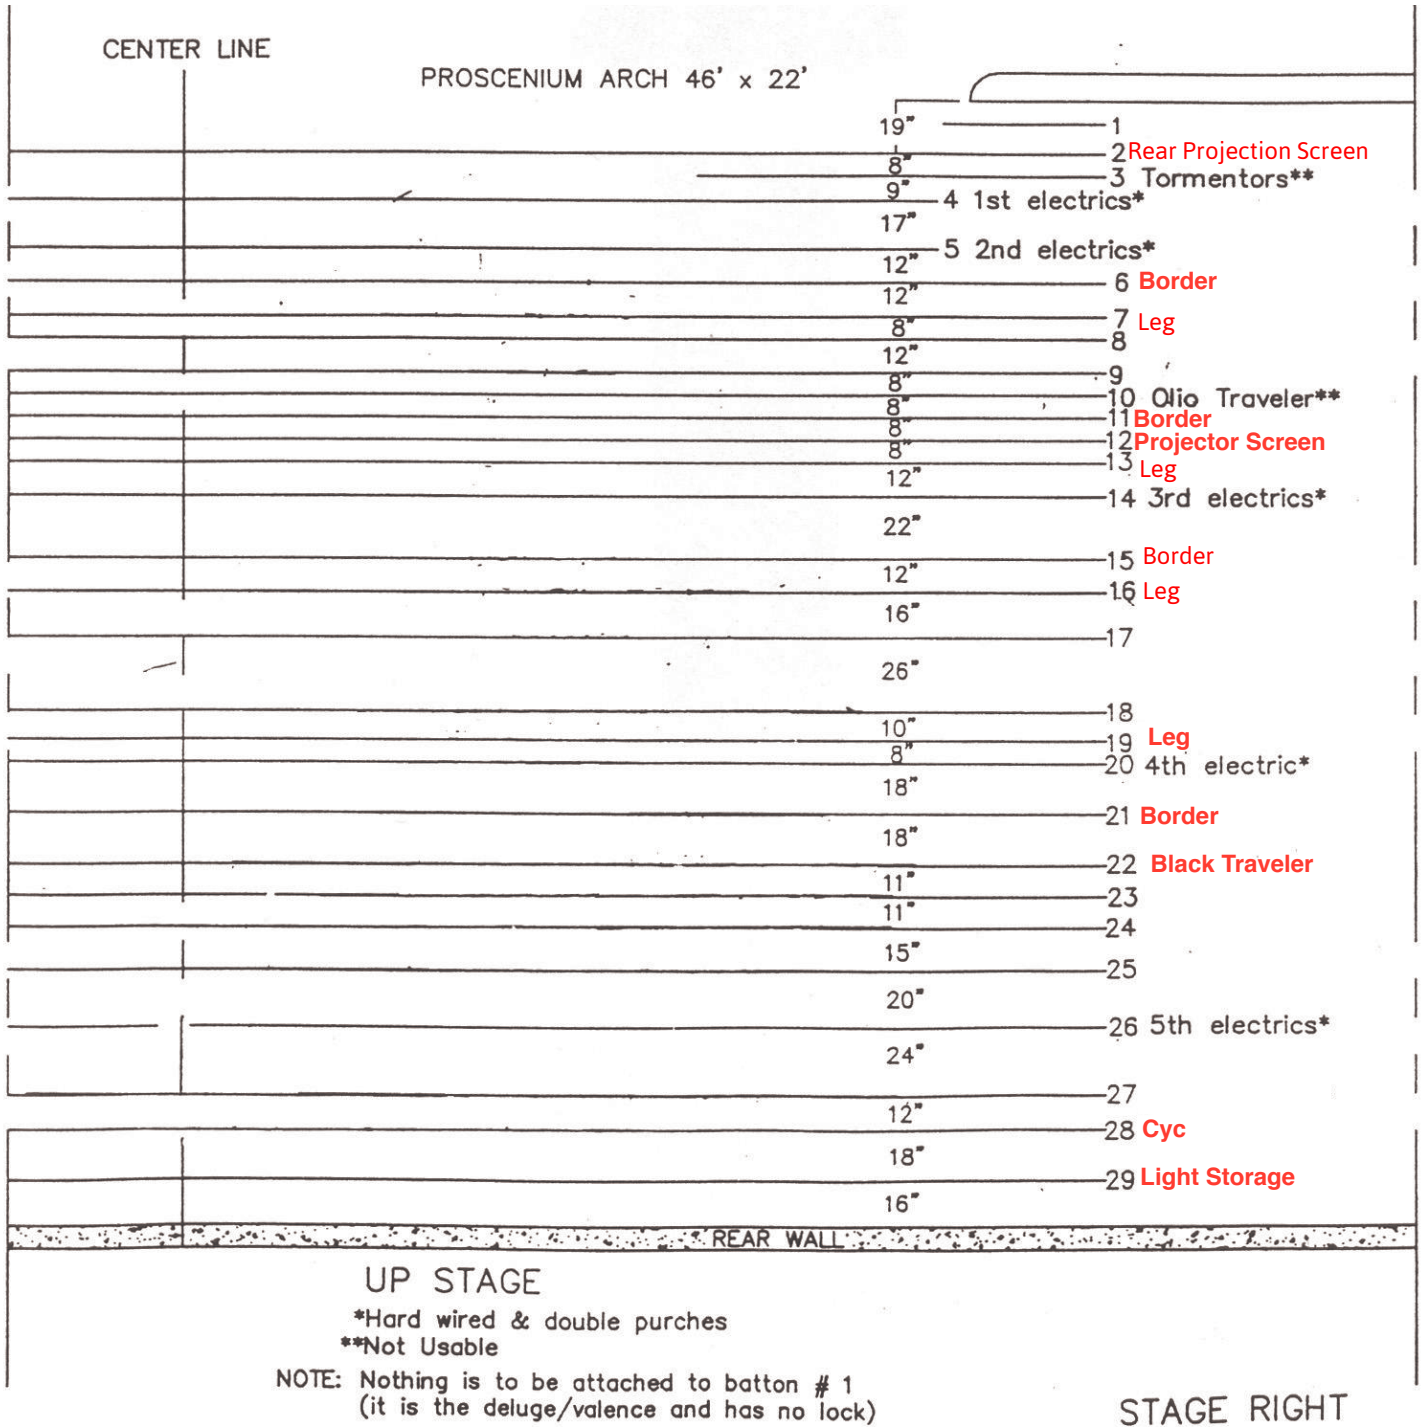 CENTER LINE
PROSCENIUM ARCH 46' x 22'
19"
1
2 Rear Projection Screen
8"
3 Tormentors**
9"
4 1st electrics*
17"
5 2nd electrics*
12"
6 Border
12"
7 Leg
8"
8
12"
9
8"
10 Olio Traveler**
8"
11 Border
8"
12 Projector Screen
8"
13 Leg
12"
14 3rd electrics*
22"
15 Border
12"
16 Leg
16"
17
26"
18
10"
19 Leg
8"
20 4th electric*
18"
21 Border
18"
22 Black Traveler
11"
23
11"
24
15"
25
20"
26 5th electrics*
24"
27
12"
28 Cyc
18"
29 Light Storage
16"
REAR WALL
UP STAGE
*Hard wired & double purches
**Not Usable
NOTE: Nothing is to be attached to batton # 1
(it is the deluge/valence and has no lock)
STAGE RIGHT